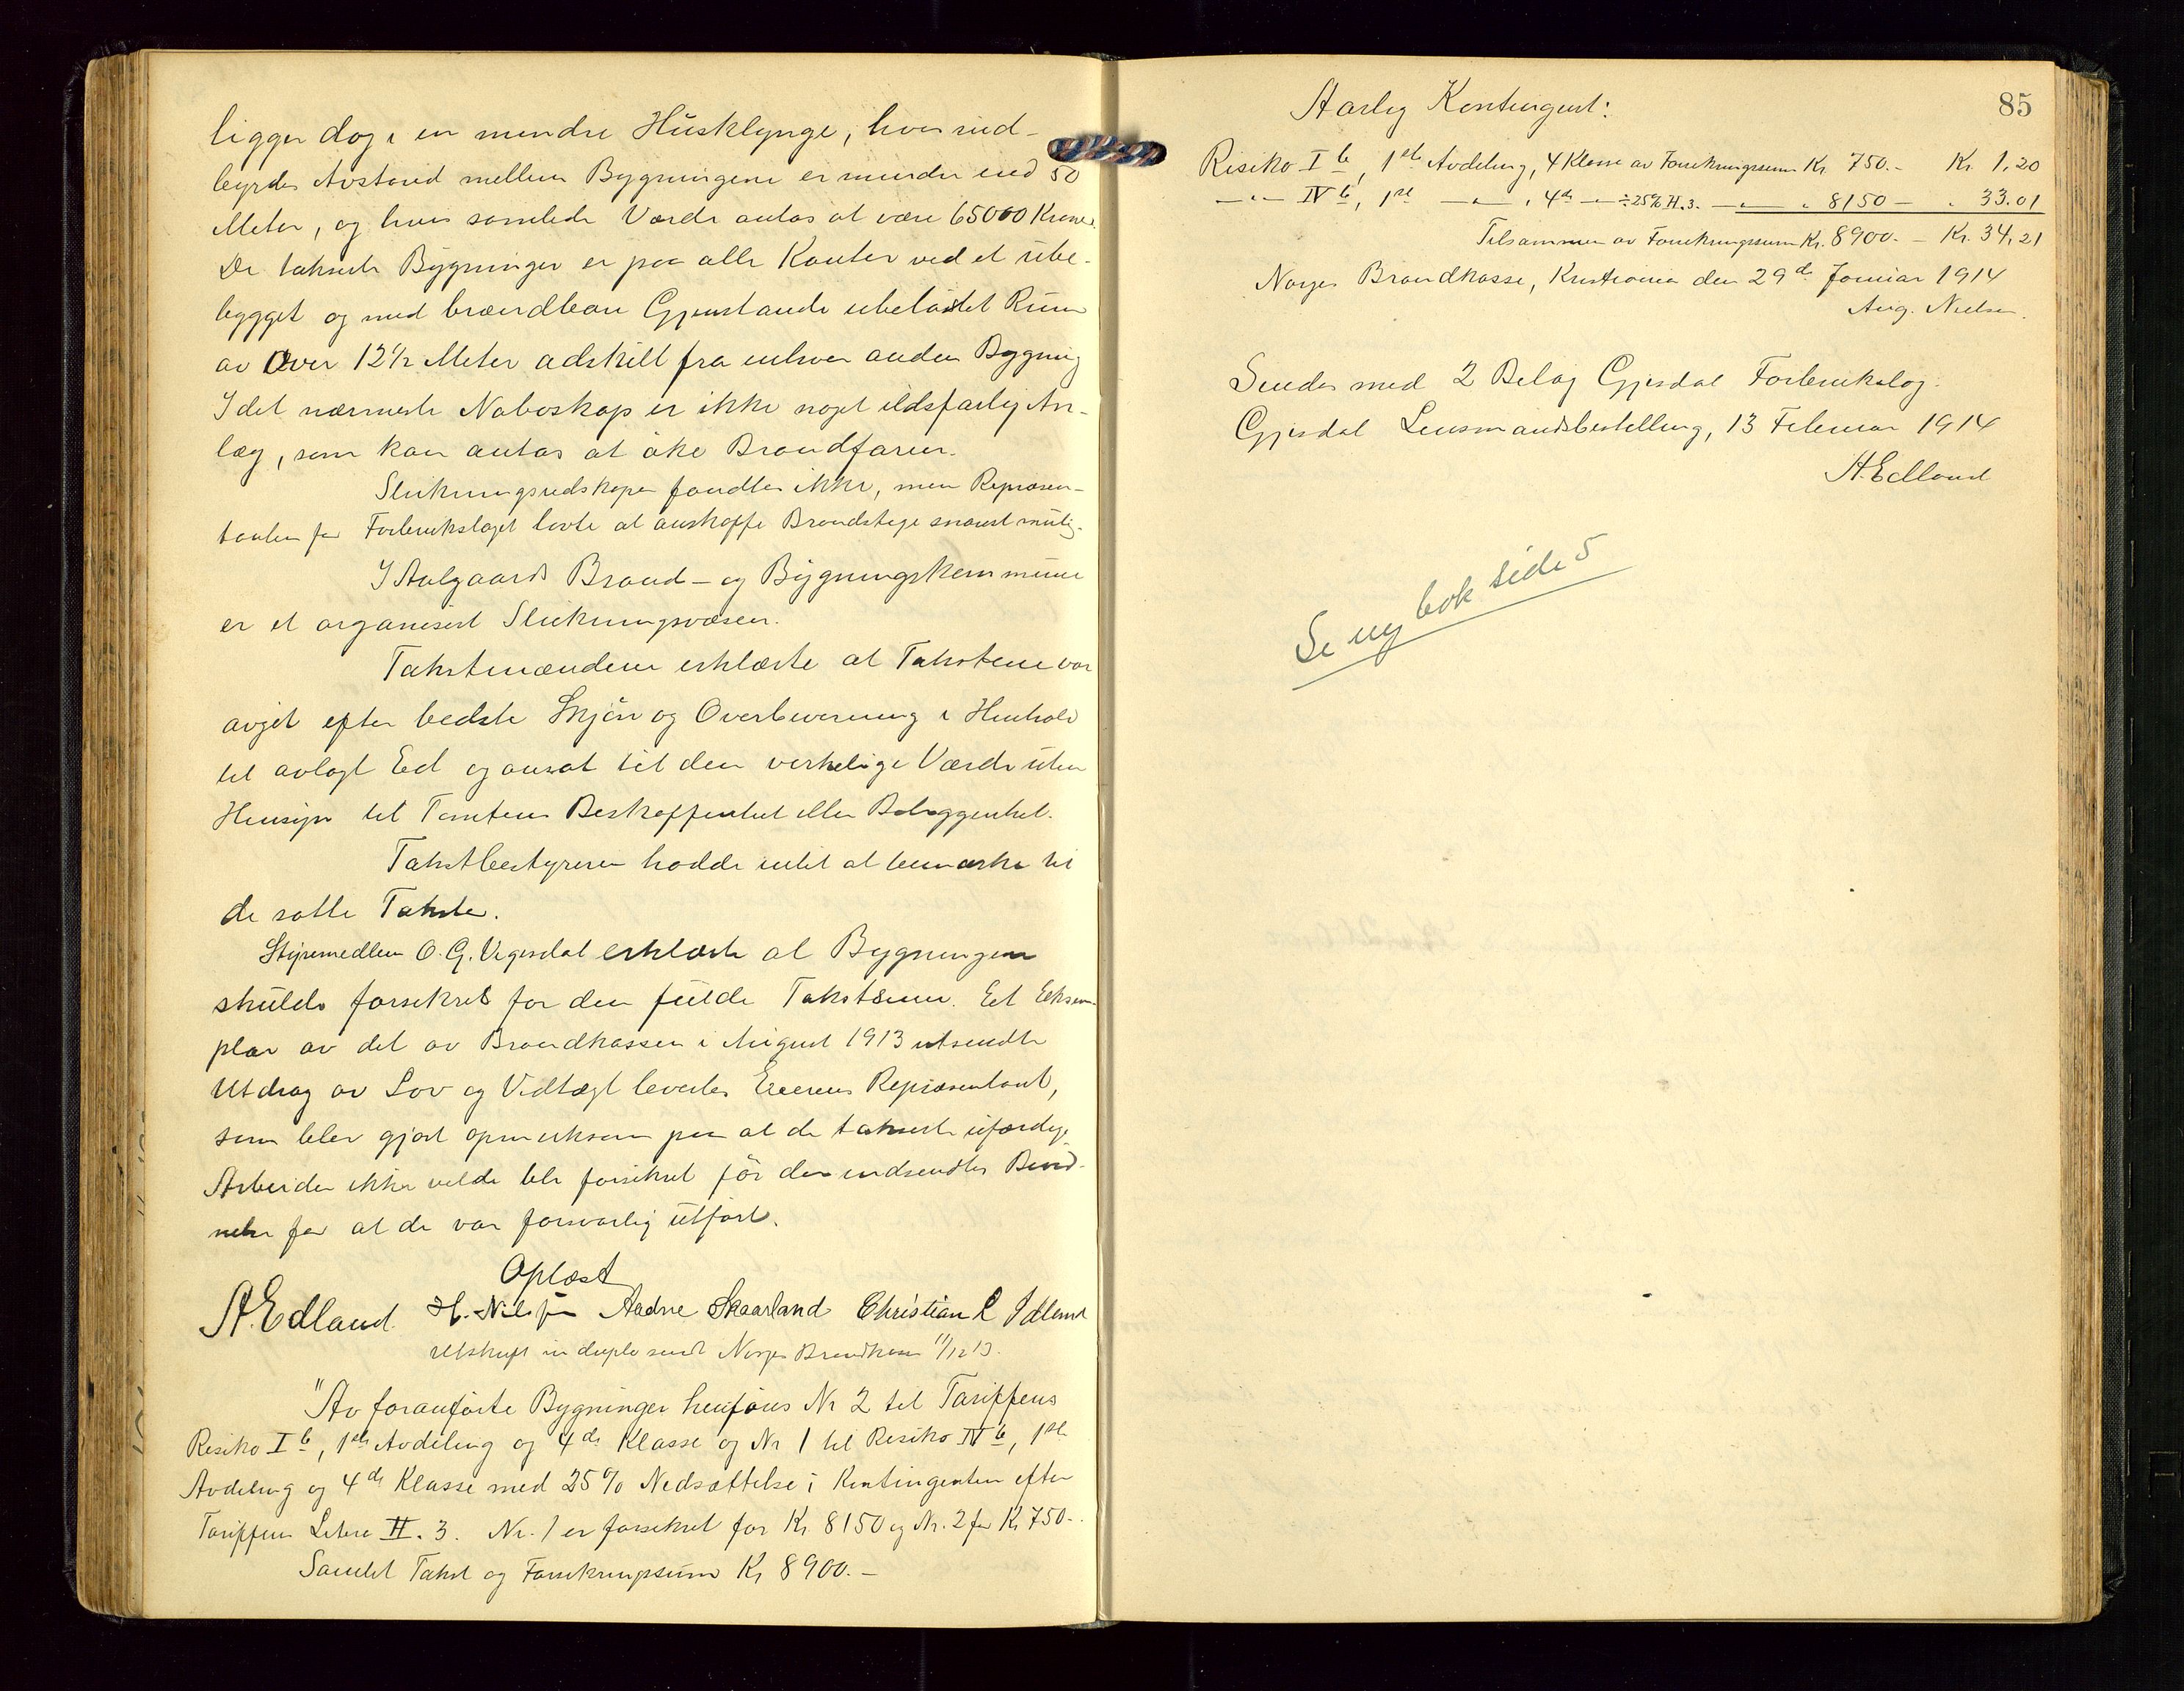 ligger dog i en mindre Husklynge, hvis ind-
byrdes Avstand mellem Bygningene er mindre end 50
Meter, og hvis samlede Værdi antas at være 65000 Kroner.
De takserte Bygninger er paa alle Kanter ved et ube-
bygget og med brændbare Gjenstande ubelastet Rum
av over 12½ Meter adskilt fra enhver anden Bygning
I det nærmeste Naboskap er ikke noget ildsfarlig An-
læg, som kan antas at øke Brandfaren.
Slukningsredskaper fandtes ikke, men Repræsen-
tanten for Forbrukslaget lovte at anskaffe Brandstige snarest mulig.
I Aalgaards Brand- og Bygningskommune
er et organisert Slukningsvæsen.
Takstmændene erklærte at Takstene var
avgit efter bedste Skjøn og Overbevisning i Henhold
til avlagt Ed og ansat til den virkelige Værdi uten
Hensyn til Tomtens Beskaffenhet eller Beliggenhet.
Takstbestyreren hadde intet at bemærke til
de satte Takster.
Styremedlem O. G. Vegesdal erklærte at Bygningen
skulde forsikres for den fulde Takstsum. Et Eksem-
plar av det av Brandkassen i August 1913 utsendte
Utdrag av Lov og Vedtægt levertes Eierens Repræsentant,
som blev gjort opmerksom paa at de takserte uferdige
Arbeider ikke vilde bli forsikret før der indsendtes Bevid-
nelse for at de var forsvarlig utført.
Oplæst
A. Edland. H. Nilsen Aadne Skaarland Christian L Idland
Utskrift in duplo sendt Norges Brandkasse 11/12 13.
"Av foranførte Bygninger henføres Nr 2 til Tariffens
Risiko I b, 1ste Avdeling og 4de Klasse og Nr 1 til Risiko IV b, 1ste
Avdeling og 4de Klasse med 25% Nedsættelse i Kontingenten efter
Tariffens Litera H. 3. Nr. 1 er forsikret for Kr. 8150 og Nr. 2 for Kr 750.-
Samlet Takst og Forsikringssum Kr 8900.-
85
Aarlig Kontingent:
Risiko I b, 1ste Avdeling, 4 Klasse av Forsikringssum Kr. 750.- Kr. 1,20
—"— IV b, 1ste —"—, 4de —"— ÷25% H.3. —"— " 8150 — " 33.01
Tilsammen av Forsikringssum Kr. 8900. — Kr. 34,21
Norges Brandkasse, Kristiania den 29de Januar 1914
Aug. Nielsen.
Sendes med 2 Bilag Gjesdal Forbrukslag.
Gjesdal Lensmandsbestilling, 13 Februar 1914
A. Edland
Se ny bok side 5